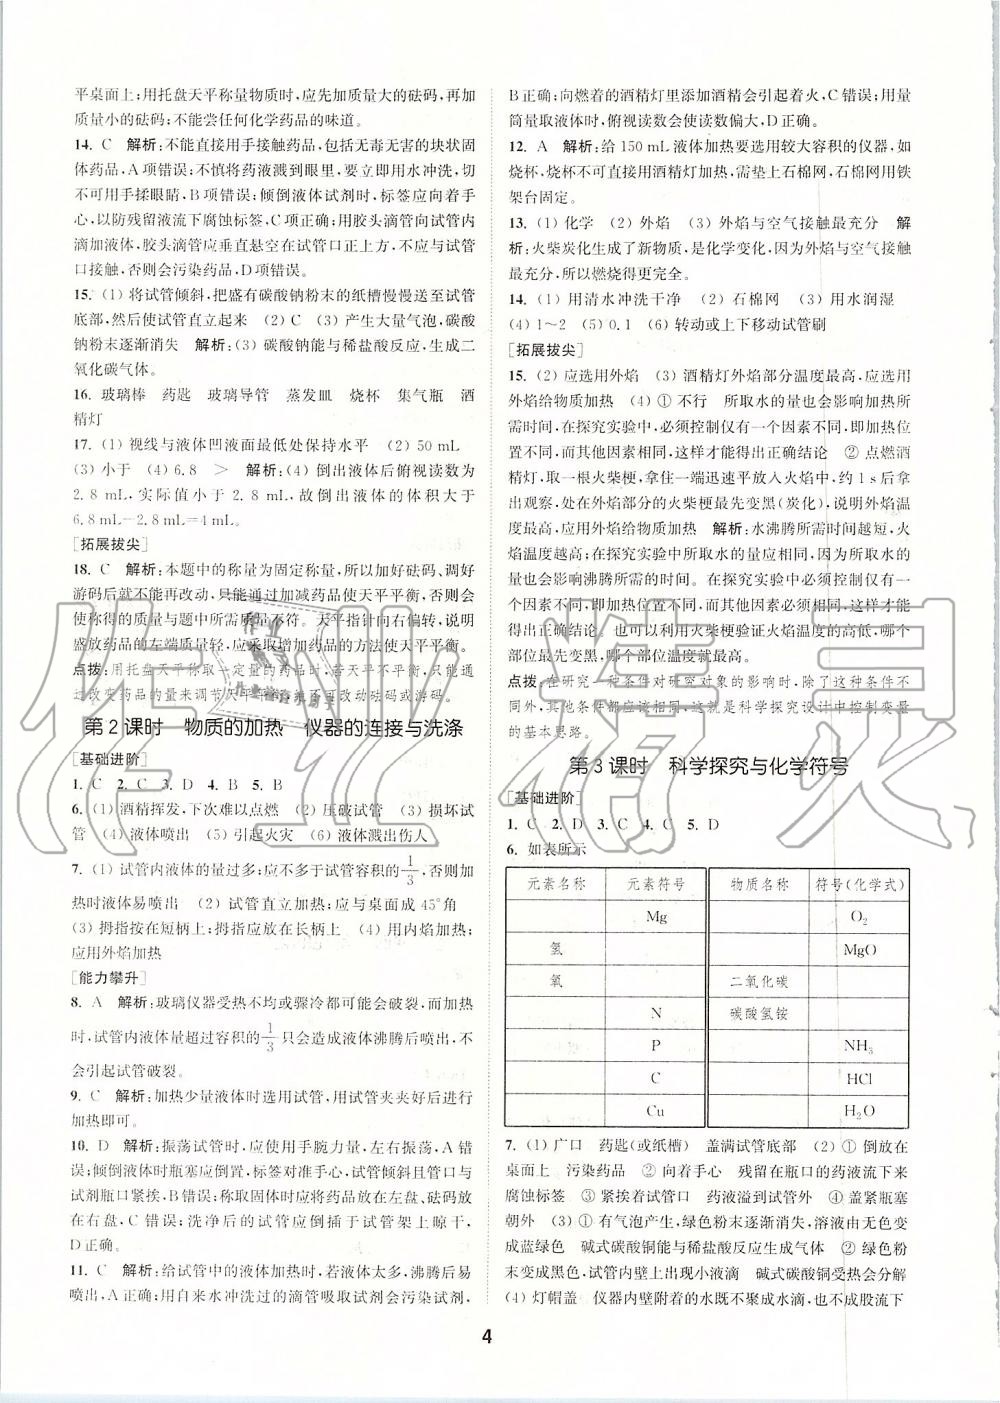 平桌面上;用托盘天平称量物质时,应先加质量大的砝码,再加
质量小的砝码;不能尝任何化学药品的味道。
14. C 解析:不能直接用手接触药品,包括无毒无害的块状固
体药品,A项错误;不慎将药液溅到眼里,要立即用水冲洗,切
不可用手揉眼睛,B项错误;倾倒液体试剂时,标签应向着手
心,以防残留液流下腐蚀标签,C项正确;用胶头滴管向试管内
滴加液体,胶头滴管应垂直悬空在试管口正上方,不应与试管
口接触,否则会污染药品,D项错误。
15. (1) 将试管倾斜,把盛有碳酸钠粉末的纸槽慢慢送至试管
底部,然后使试管直立起来 (2) C (3) 产生大量气泡,碳酸
钠粉末逐渐消失 解析:(3) 碳酸钠能与稀盐酸反应,生成二
氧化碳气体。
16. 玻璃棒 药匙 玻璃导管 蒸发皿 烧杯 集气瓶 酒
精灯
17. (1) 视线与液体凹液面最低处保持水平 (2) 50 mL
(3) 小于 (4) 6.8 > 解析:(4) 倒出液体后俯视读数为
2.8 mL,实际值小于 2.8 mL,故倒出液体的体积大于
6.8 mL-2.8 mL=4 mL。
[拓展拔尖]
18. C 解析:本题中的称量为固定称量,所以加好砝码、调好
游码后就不能再改动,只能通过加减药品使天平平衡,否则会
使称得的质量与题中所需质量不符。天平指针向右偏转,说明
盛放药品的左端质量轻,应采取增加药品的方法使天平平衡。
点拨:用托盘天平称取一定量的药品时,若天平不平衡,只能通
过改变药品的量来调节天平平衡,而不可改动砝码或游码。
第2课时 物质的加热 仪器的连接与洗涤
[基础进阶]
1. C 2. C 3. D 4. B 5. B
6. (1) 酒精挥发,下次难以点燃 (2) 压破试管 (3) 损坏试
管 (4) 液体喷出 (5) 引起火灾 (6) 液体溅出伤人
7. (1) 试管内液体的量过多;应不多于试管容积的1/3,否则加
热时液体易喷出 (2) 试管直立加热;应与桌面成45°角
(3) 拇指按在短柄上;拇指应放在长柄上 (4) 用内焰加热;
应用外焰加热
[能力攀升]
8. A 解析:玻璃仪器受热不均或骤冷都可能会破裂,而加热
时,试管内液体量超过容积的1/3只会造成液体沸腾后喷出,不
会引起试管破裂。
9. C 解析:加热少量液体时选用试管,用试管夹夹好后进行
加热即可。
10. D 解析:振荡试管时,应使用手腕力量,左右振荡,A错
误;倾倒液体时瓶塞应倒置,标签对准手心,试管倾斜且管口与
试剂瓶口紧挨,B错误;称取固体时应将药品放在左盘、砝码放
在右盘,C错误;洗净后的试管应倒插于试管架上晾干,
D正确。
11. C 解析:给试管中的液体加热时,若液体太多,沸腾后易
喷出,A正确;用自来水冲洗过的滴管吸取试剂会污染试剂,
B正确;向燃着的酒精灯里添加酒精会引起着火,C错误;用量
筒量取液体时,俯视读数会使读数偏大,D正确。
12. A 解析:给150 mL液体加热要选用较大容积的仪器,如
烧杯,烧杯不可直接用酒精灯加热,需垫上石棉网,石棉网用铁
架台固定。
13. (1) 化学 (2) 外焰 (3) 外焰与空气接触最充分 解
析:火柴炭化生成了新物质,是化学变化,因为外焰与空气接触
最充分,所以燃烧得更完全。
14. (1) 用清水冲洗干净 (2) 石棉网 (3) 用水润湿
(4) 1~2 (5) 0.1 (6) 转动或上下移动试管刷
[拓展拔尖]
15. (2) 应选用外焰 (3) 酒精灯外焰部分温度最高,应选用
外焰给物质加热 (4) ① 不行 所取水的量也会影响加热所
需时间,在探究实验中,必须控制仅有一个因素不同,即加热位
置不同,而其他因素相同,这样才能得出正确结论 ② 点燃酒
精灯,取一根火柴梗,拿住一端迅速平放入火焰中,约1 s后拿
出观察,处在外焰部分的火柴梗最先变黑(炭化),说明外焰温
度最高,应用外焰给物质加热 解析:水沸腾所需时间越短,火
焰温度越高;在探究实验中所取水的量应相同,因为水的量不同
也会影响沸腾所需的时间。在探究实验中必须控制仅有一
个因素不同,即加热位置不同,而其他因素相同,这样才能
得出正确结论。也可以利用火柴梗验证火焰温度的高低,哪个
部位最先变黑,哪个部位温度就最高。
点拨:在研究一种条件对研究对象的影响时,除了这种条件不
同外,其他条件都应该相同,这就是科学探究设计中控制变量
的基本思路。
第3课时 科学探究与化学符号
[基础进阶]
1. C 2. D 3. C 4. C 5. D
6. 如表所示
元素名称 元素符号 物质名称 符号(化学式)
Mg O₂
氢 MgO
氧 二氧化碳
N 碳酸氢铵
P NH₃
C HCl
Cu H₂O
7. (1) 广口 药匙(或纸槽) 盖满试管底部 (2) ① 倒放在
桌面上 污染药品 ② 向着手心 残留在瓶口的药液流下来
腐蚀标签 ③ 紧挨着试管口 药液溢到试管外 ④ 盖紧瓶塞
朝外 (3) ① 有气泡产生,绿色粉末逐渐消失,溶液由无色变
成蓝绿色 碱式碳酸铜能与稀盐酸反应生成气体 ② 绿色粉
末变成黑色,试管内壁上出现小液滴 碱式碳酸铜受热会分解
(4) 灯帽盖 仪器内壁附着的水既不聚成水滴,也不成股流下
4